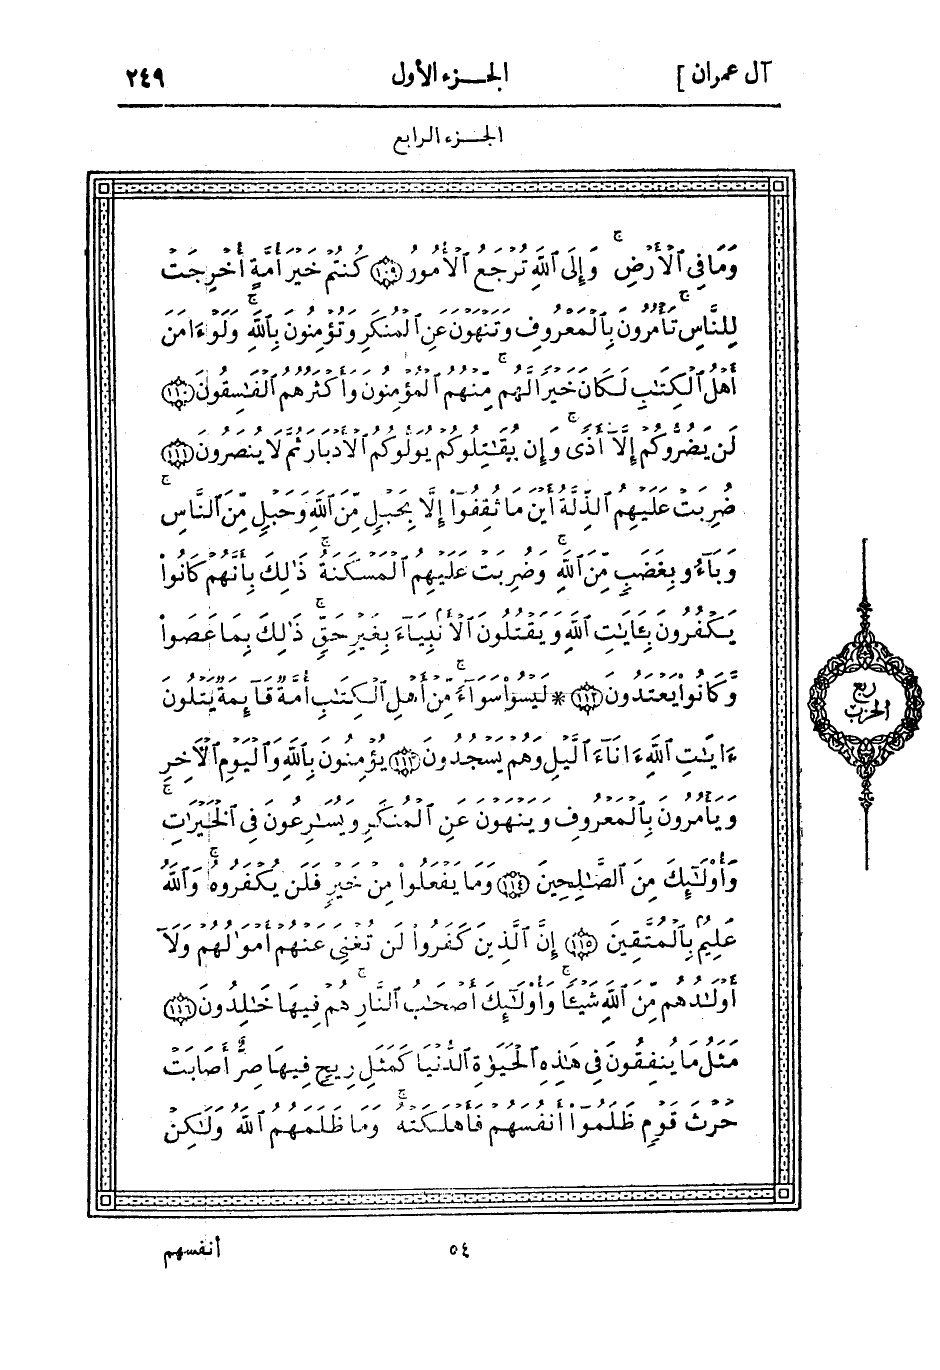 آل عمران ] الجـزء الأول ٢٤٩
الجـزء الرابع
وَمَا فِى ٱلْأَرْضِ ۚ وَإِلَى ٱللَّهِ تُرْجَعُ ٱلْأُمُورُ ﴿١٠٩﴾ كُنتُمْ خَيْرَ أُمَّةٍ أُخْرِجَتْ
لِلنَّاسِ تَأْمُرُونَ بِٱلْمَعْرُوفِ وَتَنْهَوْنَ عَنِ ٱلْمُنكَرِ وَتُؤْمِنُونَ بِٱللَّهِ ۗ وَلَوْ ءَامَنَ
أَهْلُ ٱلْكِتَٰبِ لَكَانَ خَيْرًا لَّهُم ۚ مِّنْهُمُ ٱلْمُؤْمِنُونَ وَأَكْثَرُهُمُ ٱلْفَٰسِقُونَ ﴿١١٠﴾
لَن يَضُرُّوكُمْ إِلَّآ أَذًى ۖ وَإِن يُقَٰتِلُوكُمْ يُوَلُّوكُمُ ٱلْأَدْبَارَ ثُمَّ لَا يُنصَرُونَ ﴿١١١﴾
ضُرِبَتْ عَلَيْهِمُ ٱلذِّلَّةُ أَيْنَ مَا ثُقِفُوٓا۟ إِلَّا بِحَبْلٍ مِّنَ ٱللَّهِ وَحَبْلٍ مِّنَ ٱلنَّاسِ
وَبَآءُو بِغَضَبٍ مِّنَ ٱللَّهِ وَضُرِبَتْ عَلَيْهِمُ ٱلْمَسْكَنَةُ ۚ ذَٰلِكَ بِأَنَّهُمْ كَانُوا۟
يَكْفُرُونَ بِـَٔايَٰتِ ٱللَّهِ وَيَقْتُلُونَ ٱلْأَنۢبِيَآءَ بِغَيْرِ حَقٍّ ۚ ذَٰلِكَ بِمَا عَصَوا۟
وَّكَانُوا۟ يَعْتَدُونَ ﴿١١٢﴾ * لَيْسُوا۟ سَوَآءً ۗ مِّنْ أَهْلِ ٱلْكِتَٰبِ أُمَّةٌ قَآئِمَةٌ يَتْلُونَ
ءَايَٰتِ ٱللَّهِ ءَانَآءَ ٱلَّيْلِ وَهُمْ يَسْجُدُونَ ﴿١١٣﴾ يُؤْمِنُونَ بِٱللَّهِ وَٱلْيَوْمِ ٱلْأٓخِرِ
وَيَأْمُرُونَ بِٱلْمَعْرُوفِ وَيَنْهَوْنَ عَنِ ٱلْمُنكَرِ وَيُسَٰرِعُونَ فِى ٱلْخَيْرَٰتِ
وَأُو۟لَٰٓئِكَ مِنَ ٱلصَّٰلِحِينَ ﴿١١٤﴾ وَمَا يَفْعَلُوا۟ مِنْ خَيْرٍ فَلَن يُكْفَرُوهُ ۗ وَٱللَّهُ
عَلِيمٌۢ بِٱلْمُتَّقِينَ ﴿١١٥﴾ إِنَّ ٱلَّذِينَ كَفَرُوا۟ لَن تُغْنِىَ عَنْهُمْ أَمْوَٰلُهُمْ وَلَآ
أَوْلَٰدُهُم مِّنَ ٱللَّهِ شَيْـًٔا ۖ وَأُو۟لَٰٓئِكَ أَصْحَٰبُ ٱلنَّارِ ۚ هُمْ فِيهَا خَٰلِدُونَ ﴿١١٦﴾
مَثَلُ مَا يُنفِقُونَ فِى هَٰذِهِ ٱلْحَيَوٰةِ ٱلدُّنْيَا كَمَثَلِ رِيحٍ فِيهَا صِرٌّ أَصَابَتْ
حَرْثَ قَوْمٍ ظَلَمُوٓا۟ أَنفُسَهُمْ فَأَهْلَكَتْهُ ۚ وَمَا ظَلَمَهُمُ ٱللَّهُ وَلَٰكِنْ
ربع
الحزب
٥٤ أنفسهم